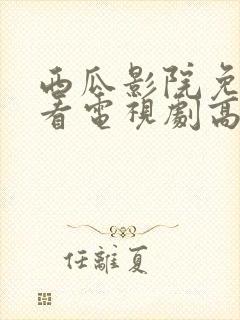 西瓜影院免
看電視劇高
任離夏